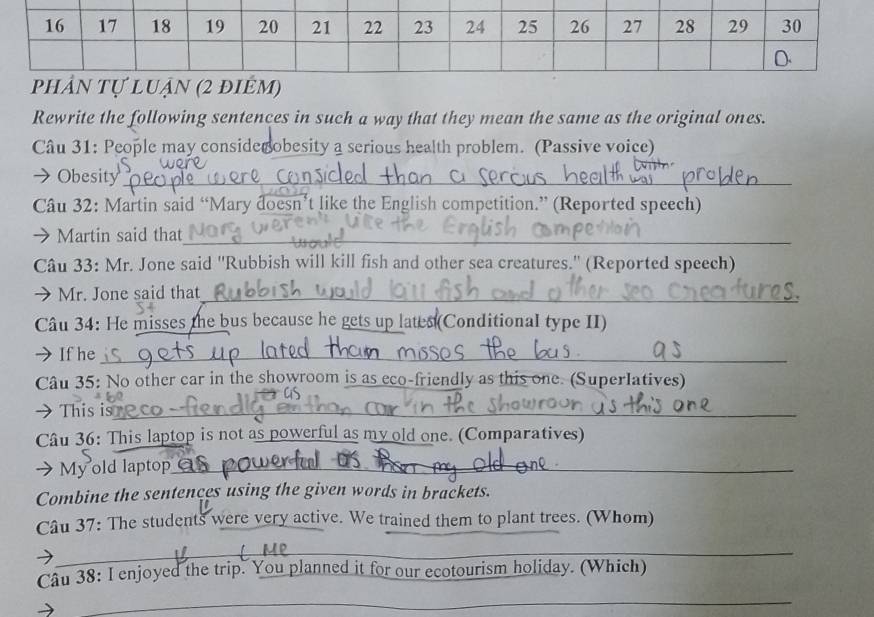 16 17 18 19 20 21 22 23 24 25 26 27 28 29 30
D.
PHẦN TỰ LUẬN (2 ĐIỂM)
Rewrite the following sentences in such a way that they mean the same as the original ones.
Câu 31: People may consider obesity a serious health problem. (Passive voice)
is were
→ Obesity people were consided than a sercus health was problen
Câu 32: Martin said “Mary doesn't like the English competition.” (Reported speech)
→ Martin said that Mary weren't like the English competion
would
Câu 33: Mr. Jone said "Rubbish will kill fish and other sea creatures." (Reported speech)
→ Mr. Jone said that Rubbish would kill fish and other seo creatures.
Câu 34: He misses the bus because he gets up late. (Conditional type II)
→ If he is gets up lated tham misses the bus. as
Câu 35: No other car in the showroom is as eco-friendly as this one. (Superlatives)
as
→ This is eco-fiendly than car in the showroun us this one
Câu 36: This laptop is not as powerful as my old one. (Comparatives)
→ My old laptop as powerful as my old one.
Combine the sentences using the given words in brackets.
Câu 37: The students were very active. We trained them to plant trees. (Whom)
→ Me
Câu 38: I enjoyed the trip. You planned it for our ecotourism holiday. (Which)
→